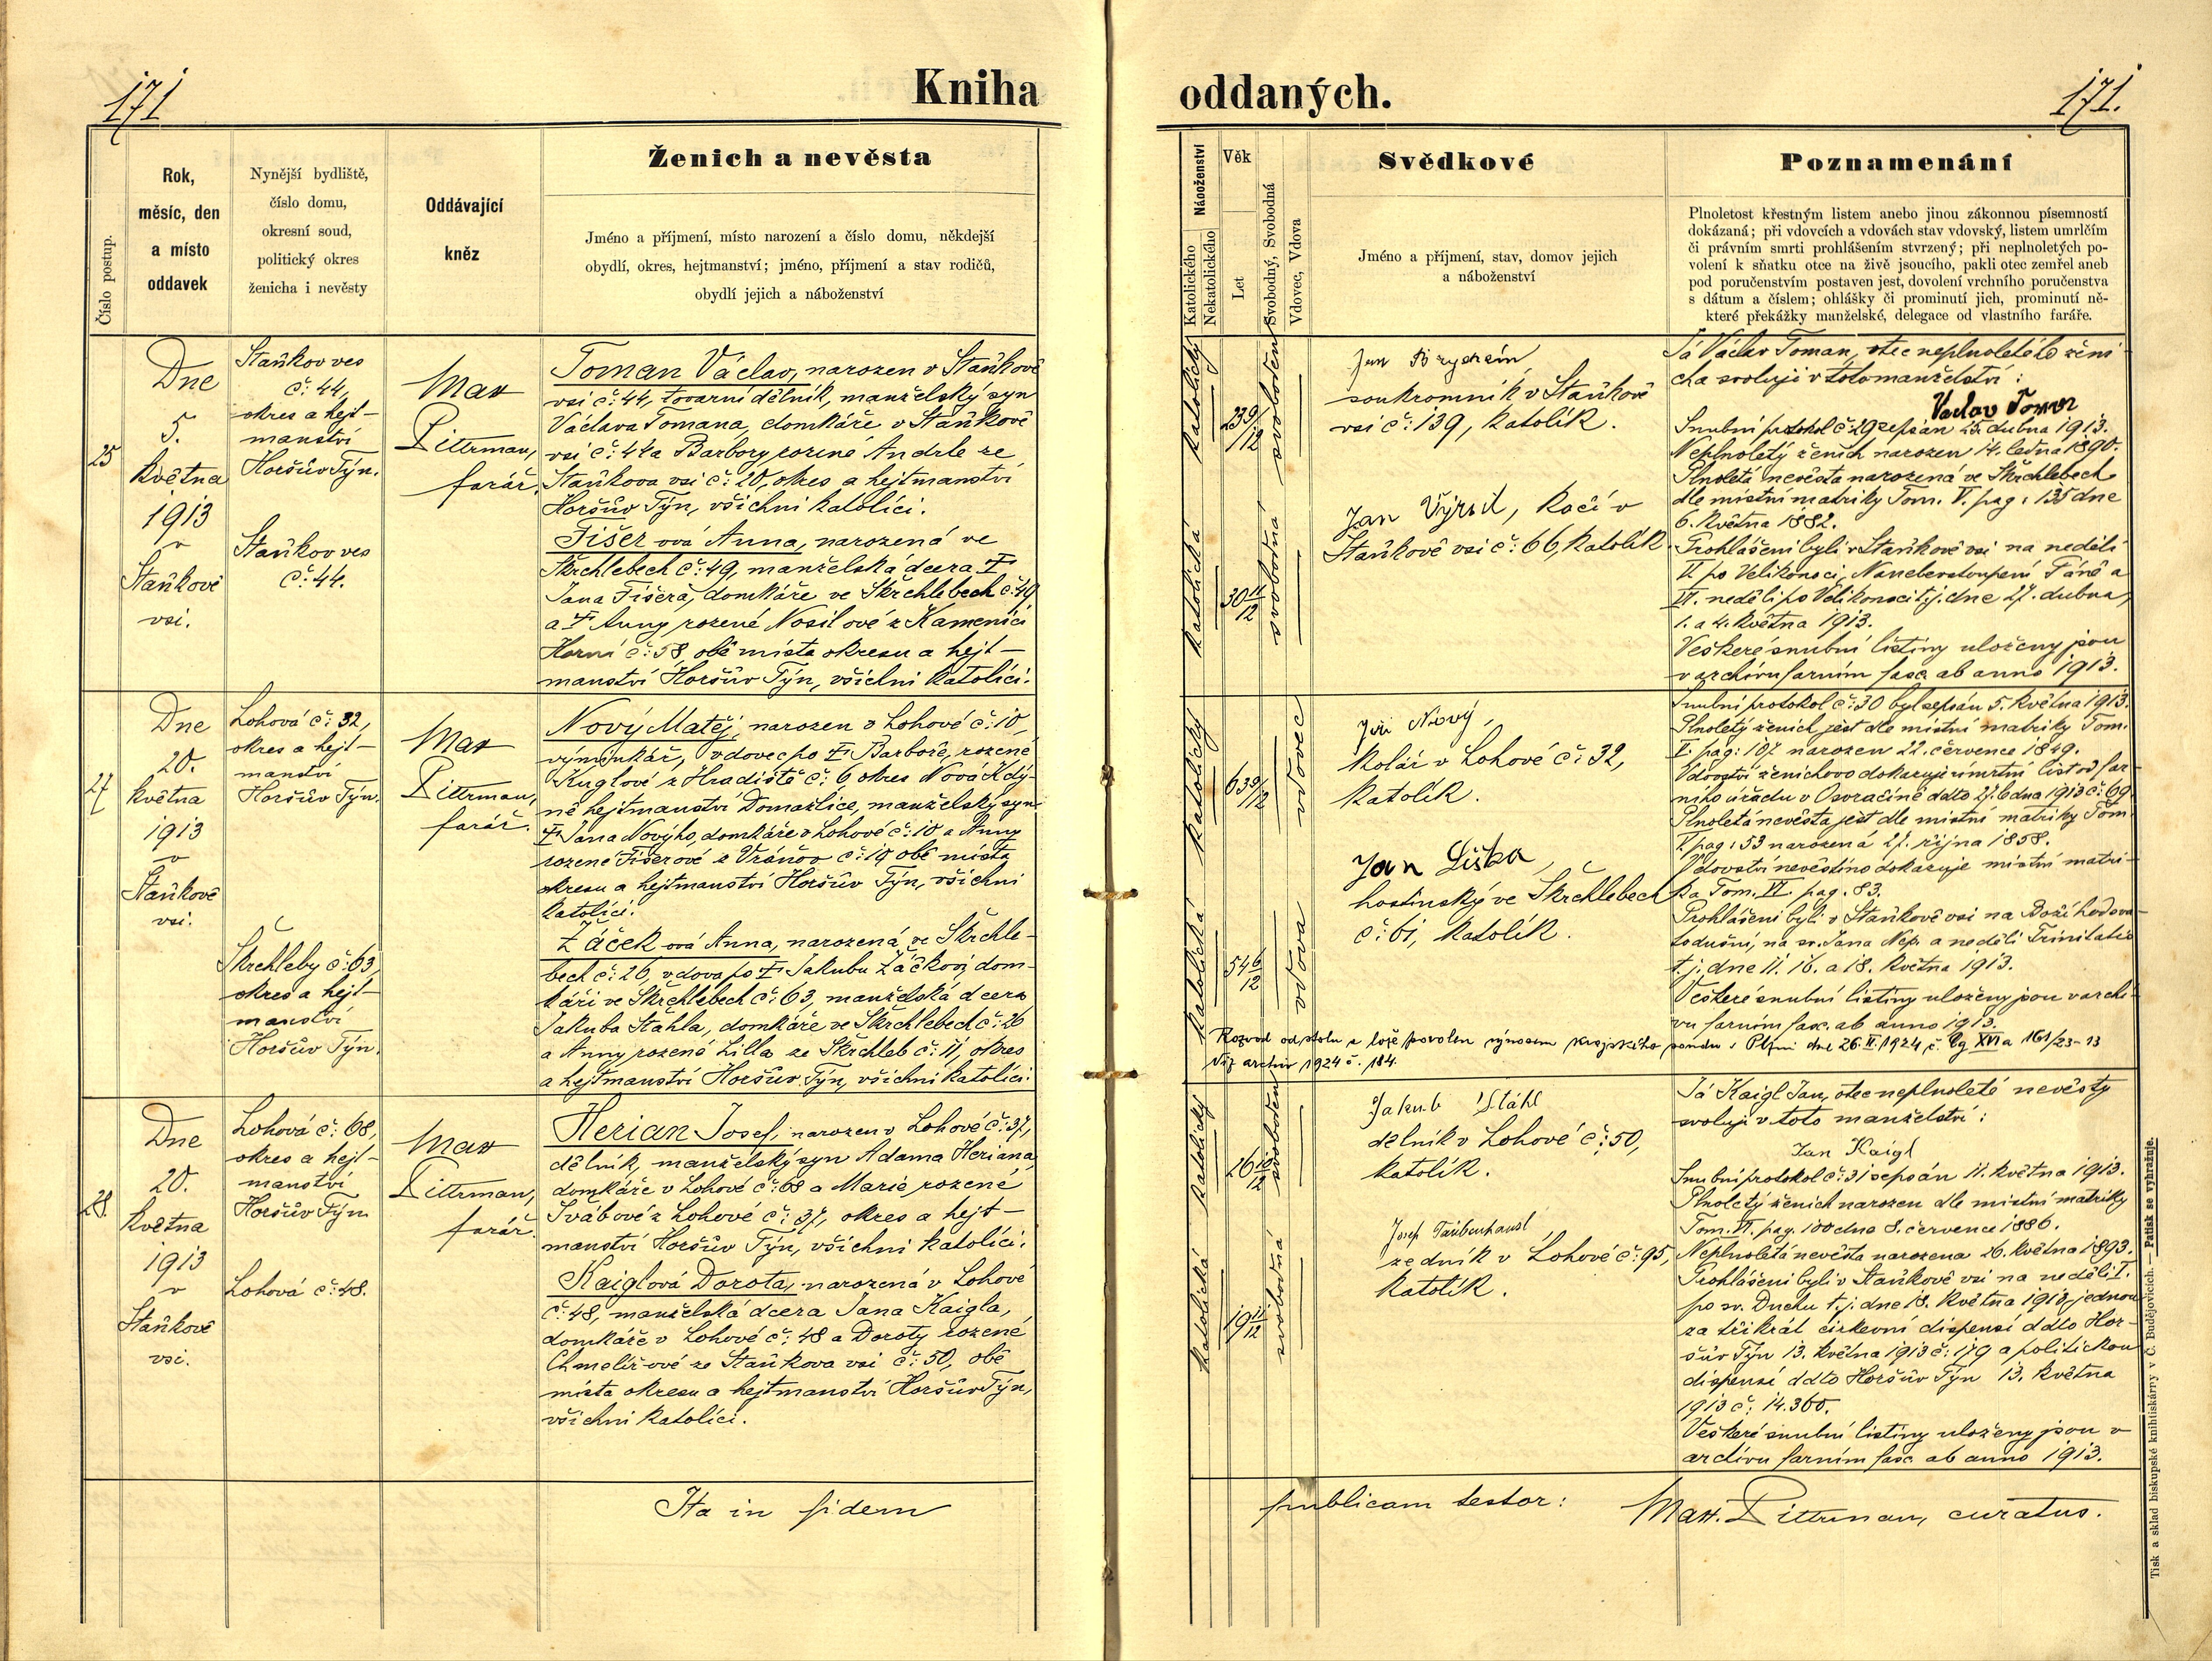 171
Kniha
Číslo postup.
Rok,
měsíc, den
a místo
oddavek
Nynější bydliště,
číslo domu,
okresní soud,
politický okres
ženicha i nevěsty
Oddávající
kněz
Ženich a nevěsta
Jméno a příjmení, místo narození a číslo domu, někdejší
obydlí, okres, hejtmanství; jméno, příjmení a stav rodičů,
obydlí jejich a náboženství
25
Dne
5.
května
1913
v
Staňkově
vsi.
Staňkov ves
č: 44,
okres a hejt-
manství
Horšův Týn.
Staňkov ves
č: 44.
Max
Pittrman,
farář.
Toman Václav, narozen v Staňkově
vsi č: 44, tovární dělník, manželský syn
Václava Tomana, domkáře v Staňkově
vsi č: 44 a Barbory rozené Andrle ze
Staňkova vsi č: 20, okres a hejtmanství
Horšův Týn, všichni katolíci.
Fišerová Anna, narozená ve
Škrchlebech č: 49, manželská dcera †
Jana Fišera, domkáře ve Škrchlebech č: 49
a † Anny rozené Nosilové z Kamenice
Horní č: 58, obě místa okresu a hejt-
manství Horšův Týn, všichni katolíci.
27
Dne
20.
května
1913
v
Staňkově
vsi.
Lohová č: 32,
okres a hejt-
manství
Horšův Týn.
Škrchleby č: 63,
okres a hejt-
manství
Horšův Týn.
Max
Pittrman,
farář.
Nový Matěj, narozen v Lohové č: 10,
výminkář, vdovec po † Barboře, rozené
Kuglové z Hradiště č: 6, okres Nová Kdý-
ně hejtmanství Domažlice, manželský syn
† Jana Novýho, domkáře v Lohové č: 10 a Anny
rozené Fišerové z Vránov č: 19 obě místa
okresu a hejtmanství Horšův Týn, všichni
katolíci.
Žáčeková Anna, narozená ve Škrchle-
bech č: 26, vdova po † Jakubu Žáčkovi, dom-
káři ve Škrchlebech č: 63, manželská dcera
Jakuba Stahla, domkáře ve Škrchlebech č: 26
a Anny rozené Lilla ze Škrchleb č: 11, okres
a hejtmanství Horšův Týn, všichni katolíci.
28.
Dne
20.
května
1913
v
Staňkově
vsi.
Lohová č: 68,
okres a hejt-
manství
Horšův Týn
Lohová č: 48.
Max
Pittrman,
farář.
Herian Josef, narozen v Lohové č: 37,
dělník, manželský syn Adama Heriana,
domkáře v Lohové č: 68 a Marie rozené
Švábové z Lohové č: 37, okres a hejt-
manství Horšův Týn, všichni katolíci.
Kaiglová Dorota, narozená v Lohové
č: 48, manželská dcera Jana Kaigla,
domkáře v Lohové č: 48 a Doroty rozené
Chmelířové ze Staňkova vsi č: 50, obě
místa okresu a hejtmanství Horšův Týn,
všichni katolíci.
Ita in fidem
oddaných.
171.
Náboženství
Katolického
Nekatolického
Věk
Let
Svobodný, Svobodná
Vdovec, Vdova
Svědkové
Jméno a příjmení, stav, domov jejich
a náboženství
Poznamenání
Plnoletost křestným listem anebo jinou zákonnou písemností
dokázaná; při vdovcích a vdovách stav vdovský, listem umrlčím
či právním smrti prohlášením stvrzený; při neplnoletých po-
volení k sňatku otce na živě jsoucího, pakli otec zemřel aneb
pod poručenstvím postaven jest, dovolení vrchního poručenstva
s dátum a číslem; ohlášky či prominutí jich, prominutí ně-
které překážky manželské, delegace od vlastního faráře.
katolický
23 9/12
svoboden
katolická
30 11/12
svobodná
soukromník v Staňkově
vsi č: 139, katolík.
Jan Výrut, kočí v
Staňkově vsi č: 66, katolík.
Já Václav Toman, otec neplnoletého žení-
cha svoluji v toto manželství:
Václav Toman
Snubní protokol č: 29 sepsán 25. dubna 1913.
Neplnoletý ženich narozen 14. ledna 1890.
Plnoletá nevěsta narozená ve Škrchlebech
dle místní matriky Tom. V. pag: 135 dne
6. května 1882.
Prohlášeni byli v Staňkově vsi na neděli
V. po Velikonoci, Nanebevstoupení Páně a
VI. neděli po Velikonoci t.j. dne 27. dubna,
1. a 4. května 1913.
Veškeré snubní listiny uloženy jsou
v archivu farním fasc. ab anno 1913.
katolický
63 9/12
vdovec
katolická
54 6/12
vdova
Jiří Nový,
kolář v Lohové č: 32,
katolík.
Jan Liška,
hostinský ve Škrchlebech
č: 61, katolík.
Snubní protokol č: 30 byl sepsán 5. května 1913.
Plnoletý ženich jest dle místní matriky Tom.
I. pag: 107 narozen 22. července 1849.
Vdovství ženichovo dokazuje úmrtní list od far-
ního úřadu v Osvračíně ddto 27. ledna 1913 č: 69.
Plnoletá nevěsta jest dle místní matriky Tom.
I. pag: 53 narozená 27. října 1858.
Vdovství nevěstino dokazuje místní matri-
ka Tom. VI. pag. 83.
Prohlášeni byli v Staňkově vsi na Boží hod sva-
todušní, na sv. Jana Nep. a neděli Trinitatis
t.j. dne 11. 16. a 18. května 1913.
Veškeré snubní listiny uloženy jsou v archi-
vu farním fasc. ab anno 1913.
Rozvod od stolu a lože povolen výnosem krajského soudu v Plzni dne 26.II.1924 č. Cg XVI a 161/23-13
Viz archiv 1924 č. 184.
katolický
26 10/12
svoboden
katolická
19 11/12
svobodná
Jakub Stáhl
dělník v Lohové č: 50,
katolík.
Josef Taubenhansl
zedník v Lohové č: 95,
katolík.
Já Kaigl Jan, otec neplnoleté nevěsty
svoluji v toto manželství:
Jan Kaigl
Snubní protokol č: 31 sepsán 11. května 1913.
Plnoletý ženich narozen dle místní matriky
Tom. VI. pag. 100 dne 8. července 1886.
Neplnoletá nevěsta narozena 26. května 1893.
Prohlášeni byli v Staňkově vsi na neděli I.
po sv. Duchu t.j. dne 18. května 1913 jednou
za třikrát církevní dispensí ddto Hor-
šův Týn 13. května 1913 č: 179 a politickou
dispensí ddto Horšův Týn 13. května
1913 č: 14.360.
Veškeré snubní listiny uloženy jsou v
archivu farním fasc. ab anno 1913.
publicam testor:
Max. Pittrman, curatus.
Tisk a sklad biskupské knihtiskárny v Č. Budějovicích. — Patisk se vyhražuje.